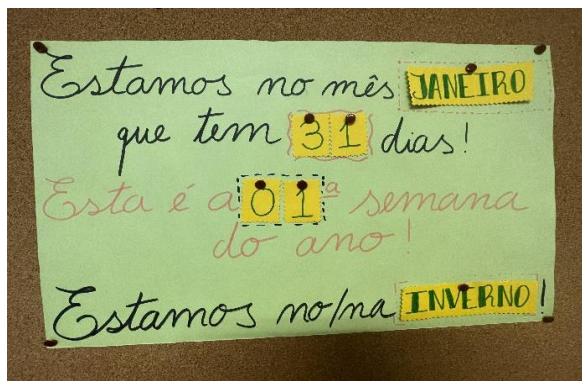 Estamos no mês JANEIRO
que tem 31 dias!
Esta é a 01ª semana
do ano!
Estamos no/na INVERNO!